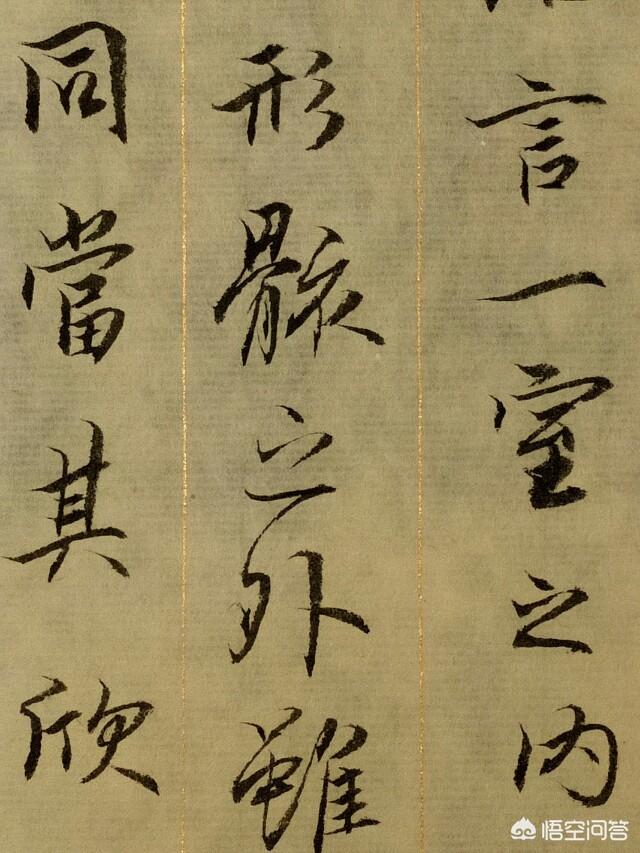 言一室之内
形骸之外雖
同當其欣
悟空问答